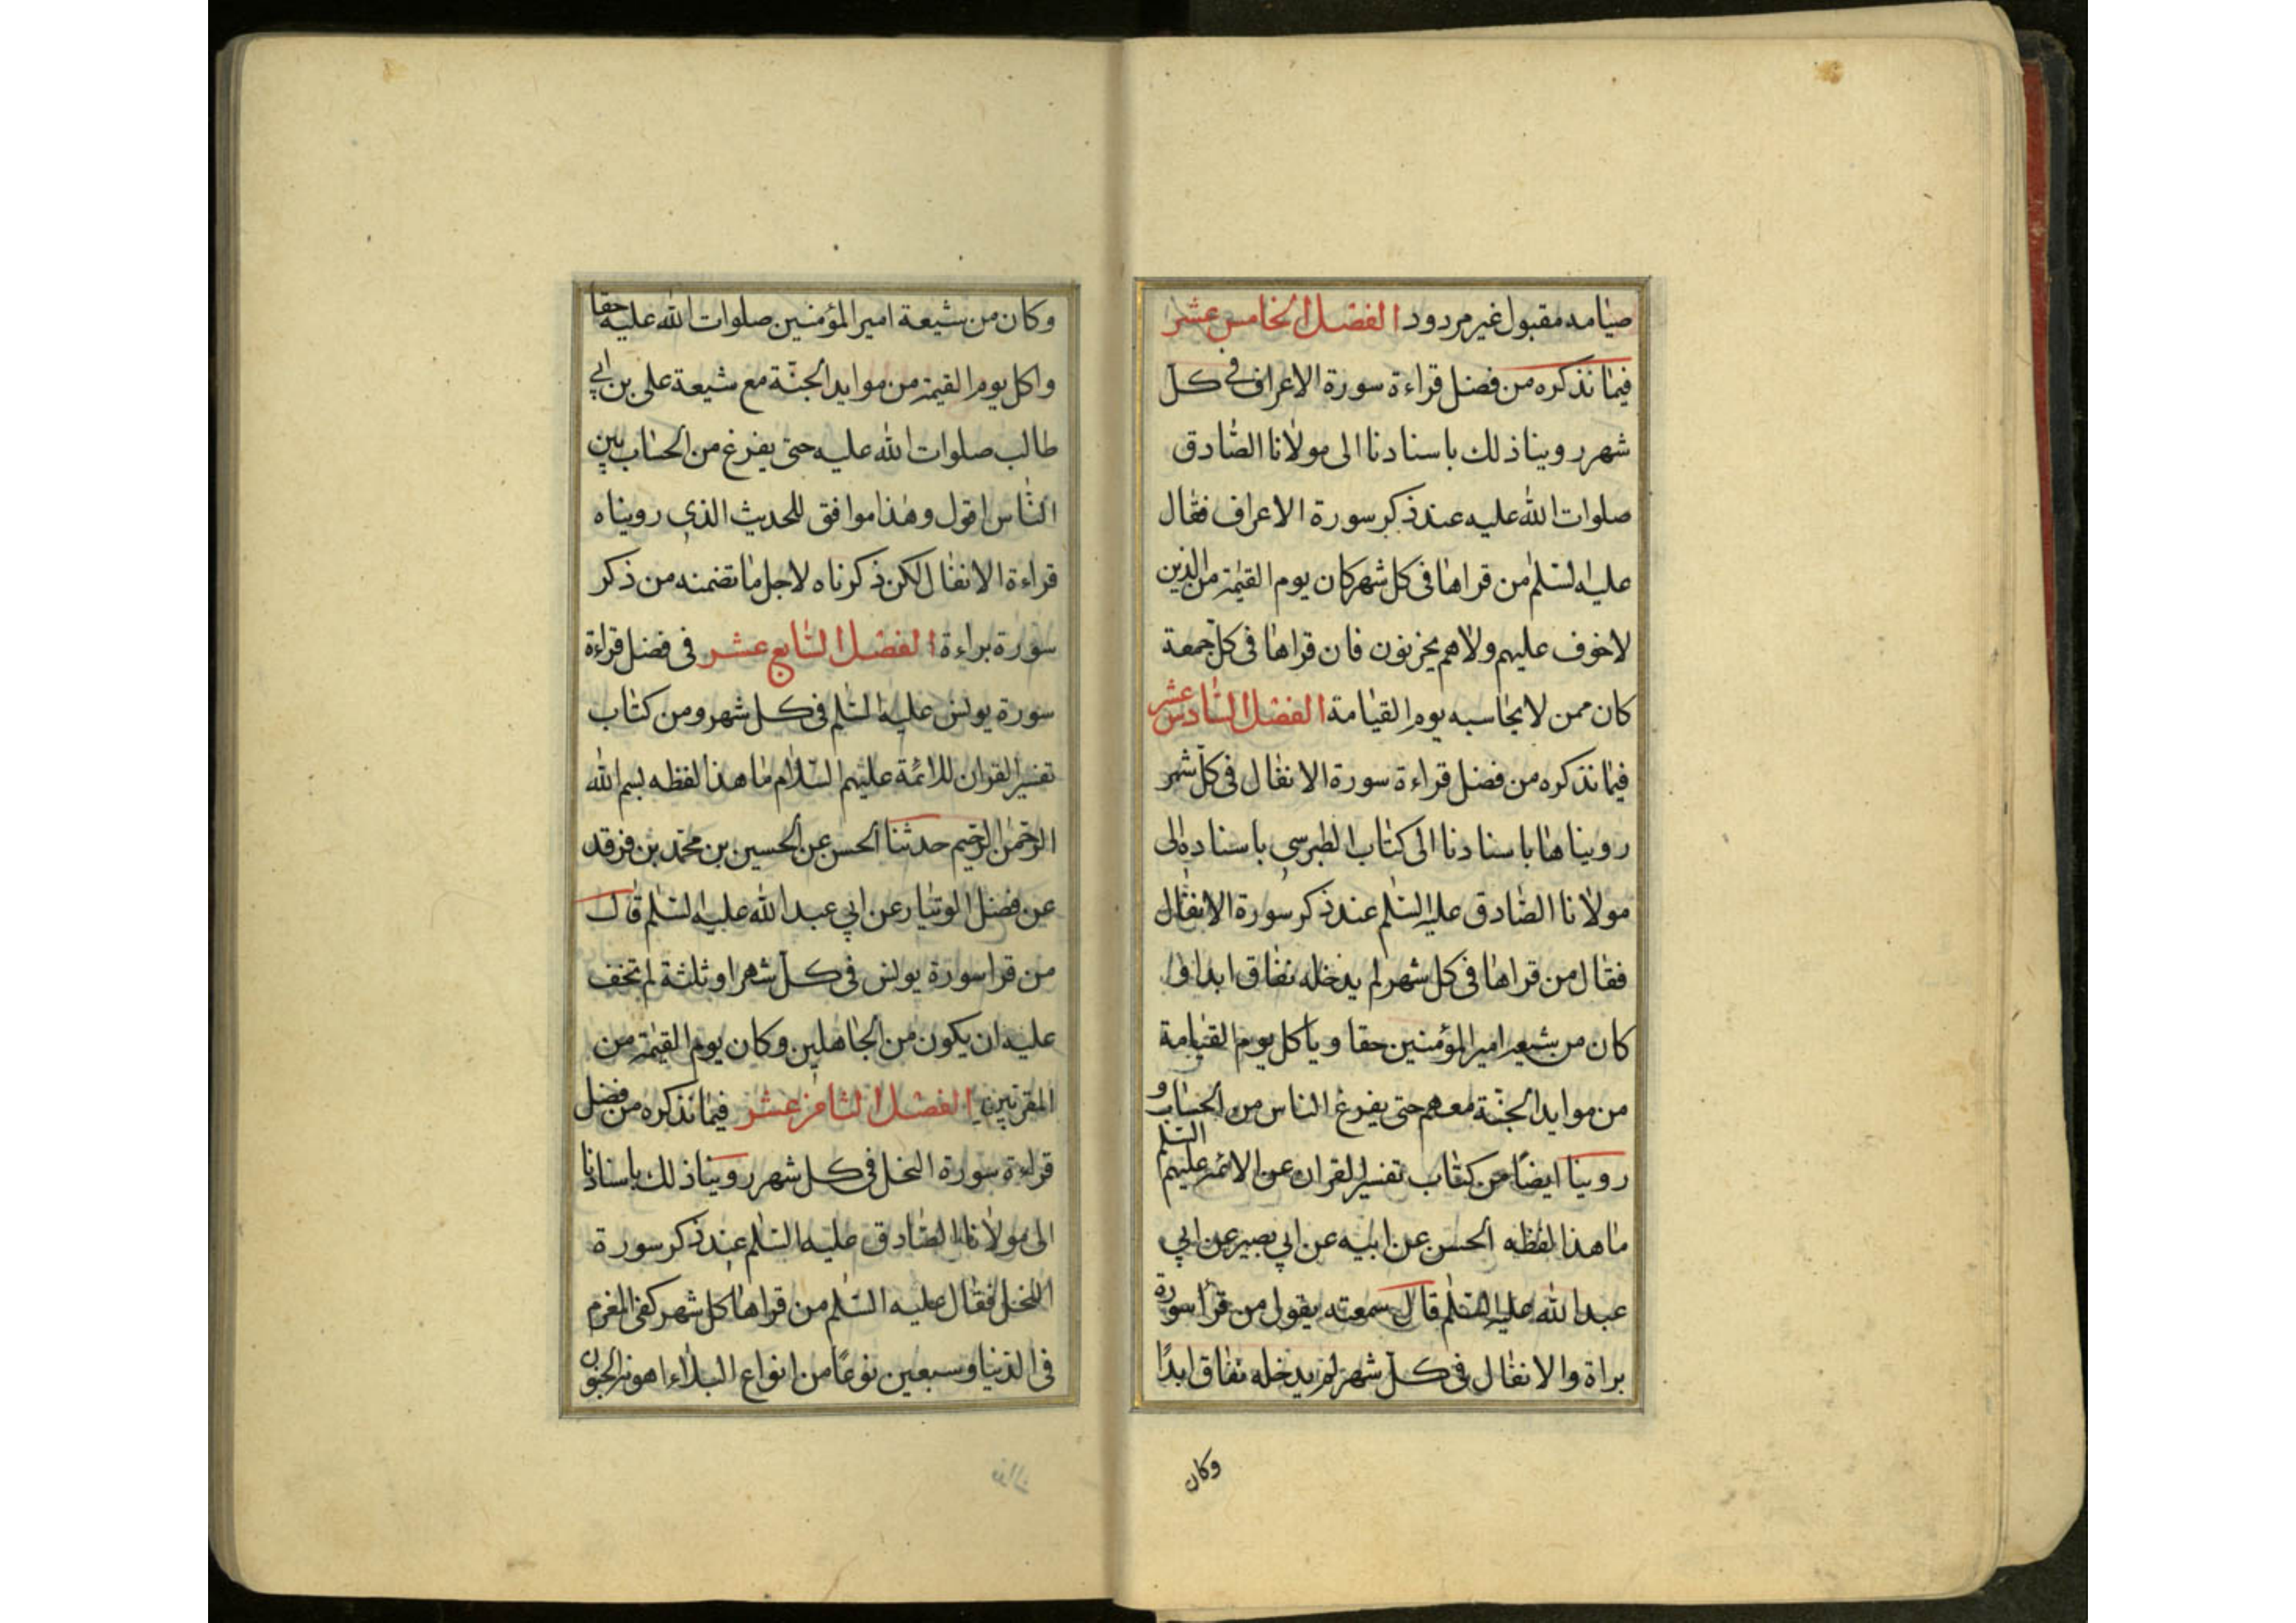 صيامه مقبول غير مردود الفصل الخامس عشر
فيما نذكره من فضل قراءة سورة الاعراف في كل
شهر روينا ذلك باسنادنا الى مولانا الصادق
صلوات الله عليه عند ذكر سورة الاعراف فقال
عليه السلم من قراها في كل شهر كان يوم القيمة من الذين
لا خوف عليهم ولا هم يحزنون فان قراها في كل جمعة
كان ممن لا يحاسبه يوم القيامة الفصل السادس عشر
فيما نذكره من فضل قراءة سورة الانفال في كل شهر
رويناها باسنادنا الى كتاب الطبرسي باسناده الى
مولانا الصادق عليه السلم عند ذكر سورة الانفال
فقال من قراها في كل شهر لم يدخله نفاق ابدا و
كان من شيعة امير المؤمنين حقا و ياكل يوم القيامة
من موايد الجنة معهم حتى يفرغ الناس من الحساب و
روينا ايضا من كتاب تفسير القران عن الائمة عليهم السلم
ما هذا لفظه الحسن عن ابيه عن ابي بصير عن ابي
عبد الله عليه السلم قال سمعته يقول من قرأ سورة
براة والانفال في كل شهر لم يدخله نفاق ابدًا
وكان
وكان من شيعة امير المؤمنين صلوات الله عليه حقا
واكل يوم القيمة من موايد الجنة مع شيعة على بن ابي
طالب صلوات الله عليه حتى يفرغ من الحساب بين
الناس اقول وهذا موافق للحديث الذي رويناه
قراءة الانفال لكن ذكرناه لاجل ما تضمنه من ذكر
سورة براءة الفصل السابع عشر في فضل قراءة
سورة يونس عليه السلم في كل شهر ومن كتاب
تفسير القران للائمة عليهم السلام ما هذا لفظه بسم الله
الرحمن الرحيم حدثنا الحسن عن الحسين بن محمد بن فرقد
عن فضل الوتيار عن ابي عبد الله عليه السلم قال
من قرا سورة يونس في كل شهر او ثلثة لم تخف
عليه ان يكون من الجاهلين وكان يوم القيمة من
المقربين الفصل الثامن عشر فيما نذكره من فضل
قراءة سورة النحل في كل شهر روينا ذلك باسنادنا
الى مولانا الصادق عليه السلم عند ذكر سورة
النحل فقال عليه السلم من قراها كل شهر كفى المغرم
في الدنيا وسبعين نوعًا من انواع البلاء اهونه الجنون